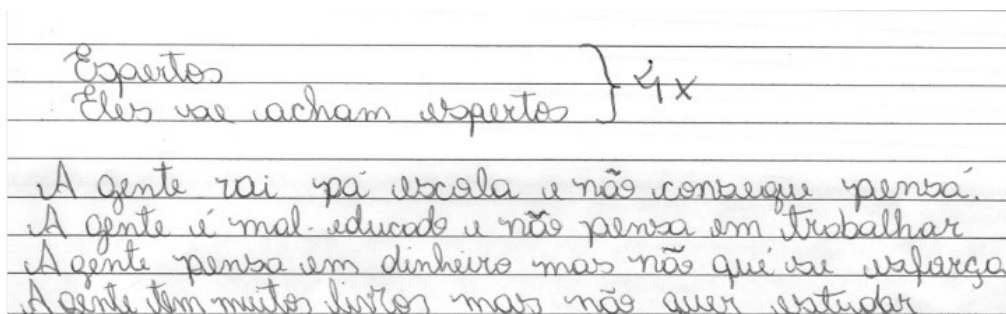 Espertos
Eles se acham espertos } 4x
A gente vai pá escola e não consegue pensá.
A gente é mal-educado e não pensa em trabalhar
A gente pensa em dinheiro mas não qué se esforça
A gente tem muitos livros mas não quer estudar